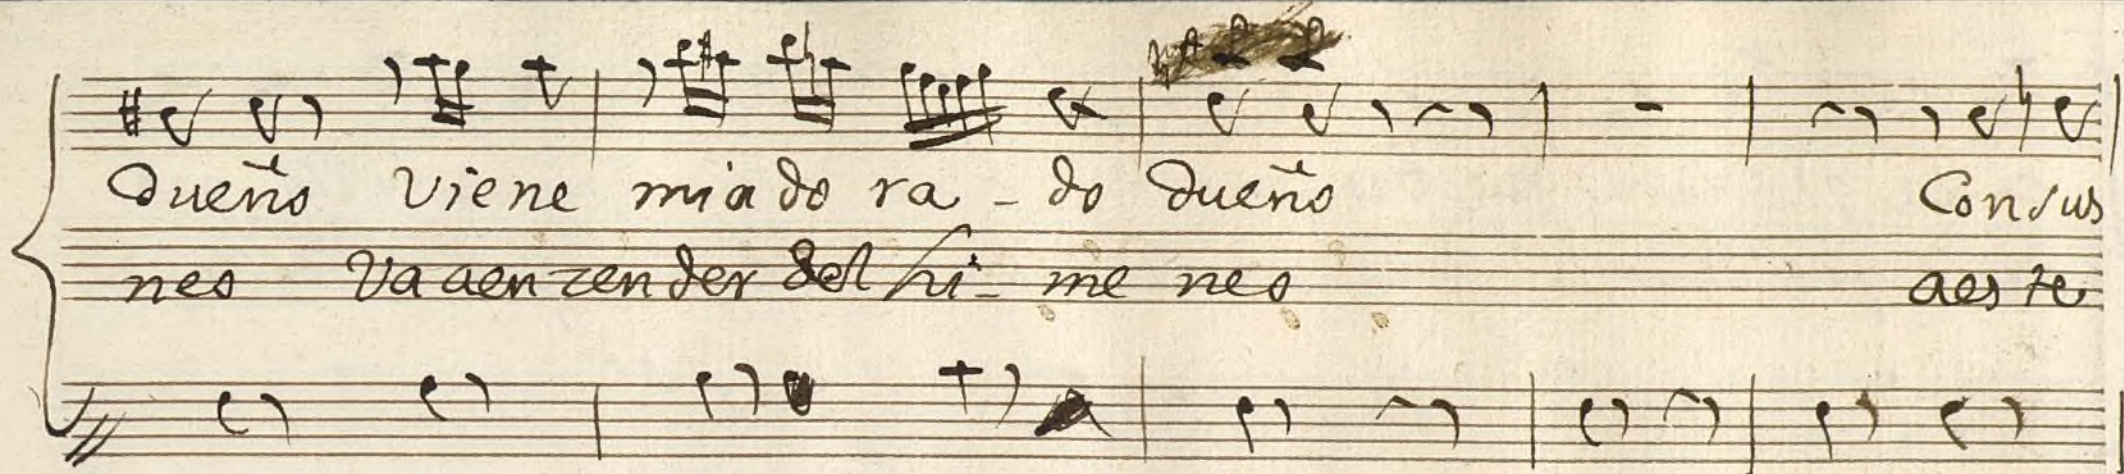 Dueño viene miado ra - do Dueño Con sus
nes va aen zen der del hi - me nes aes te